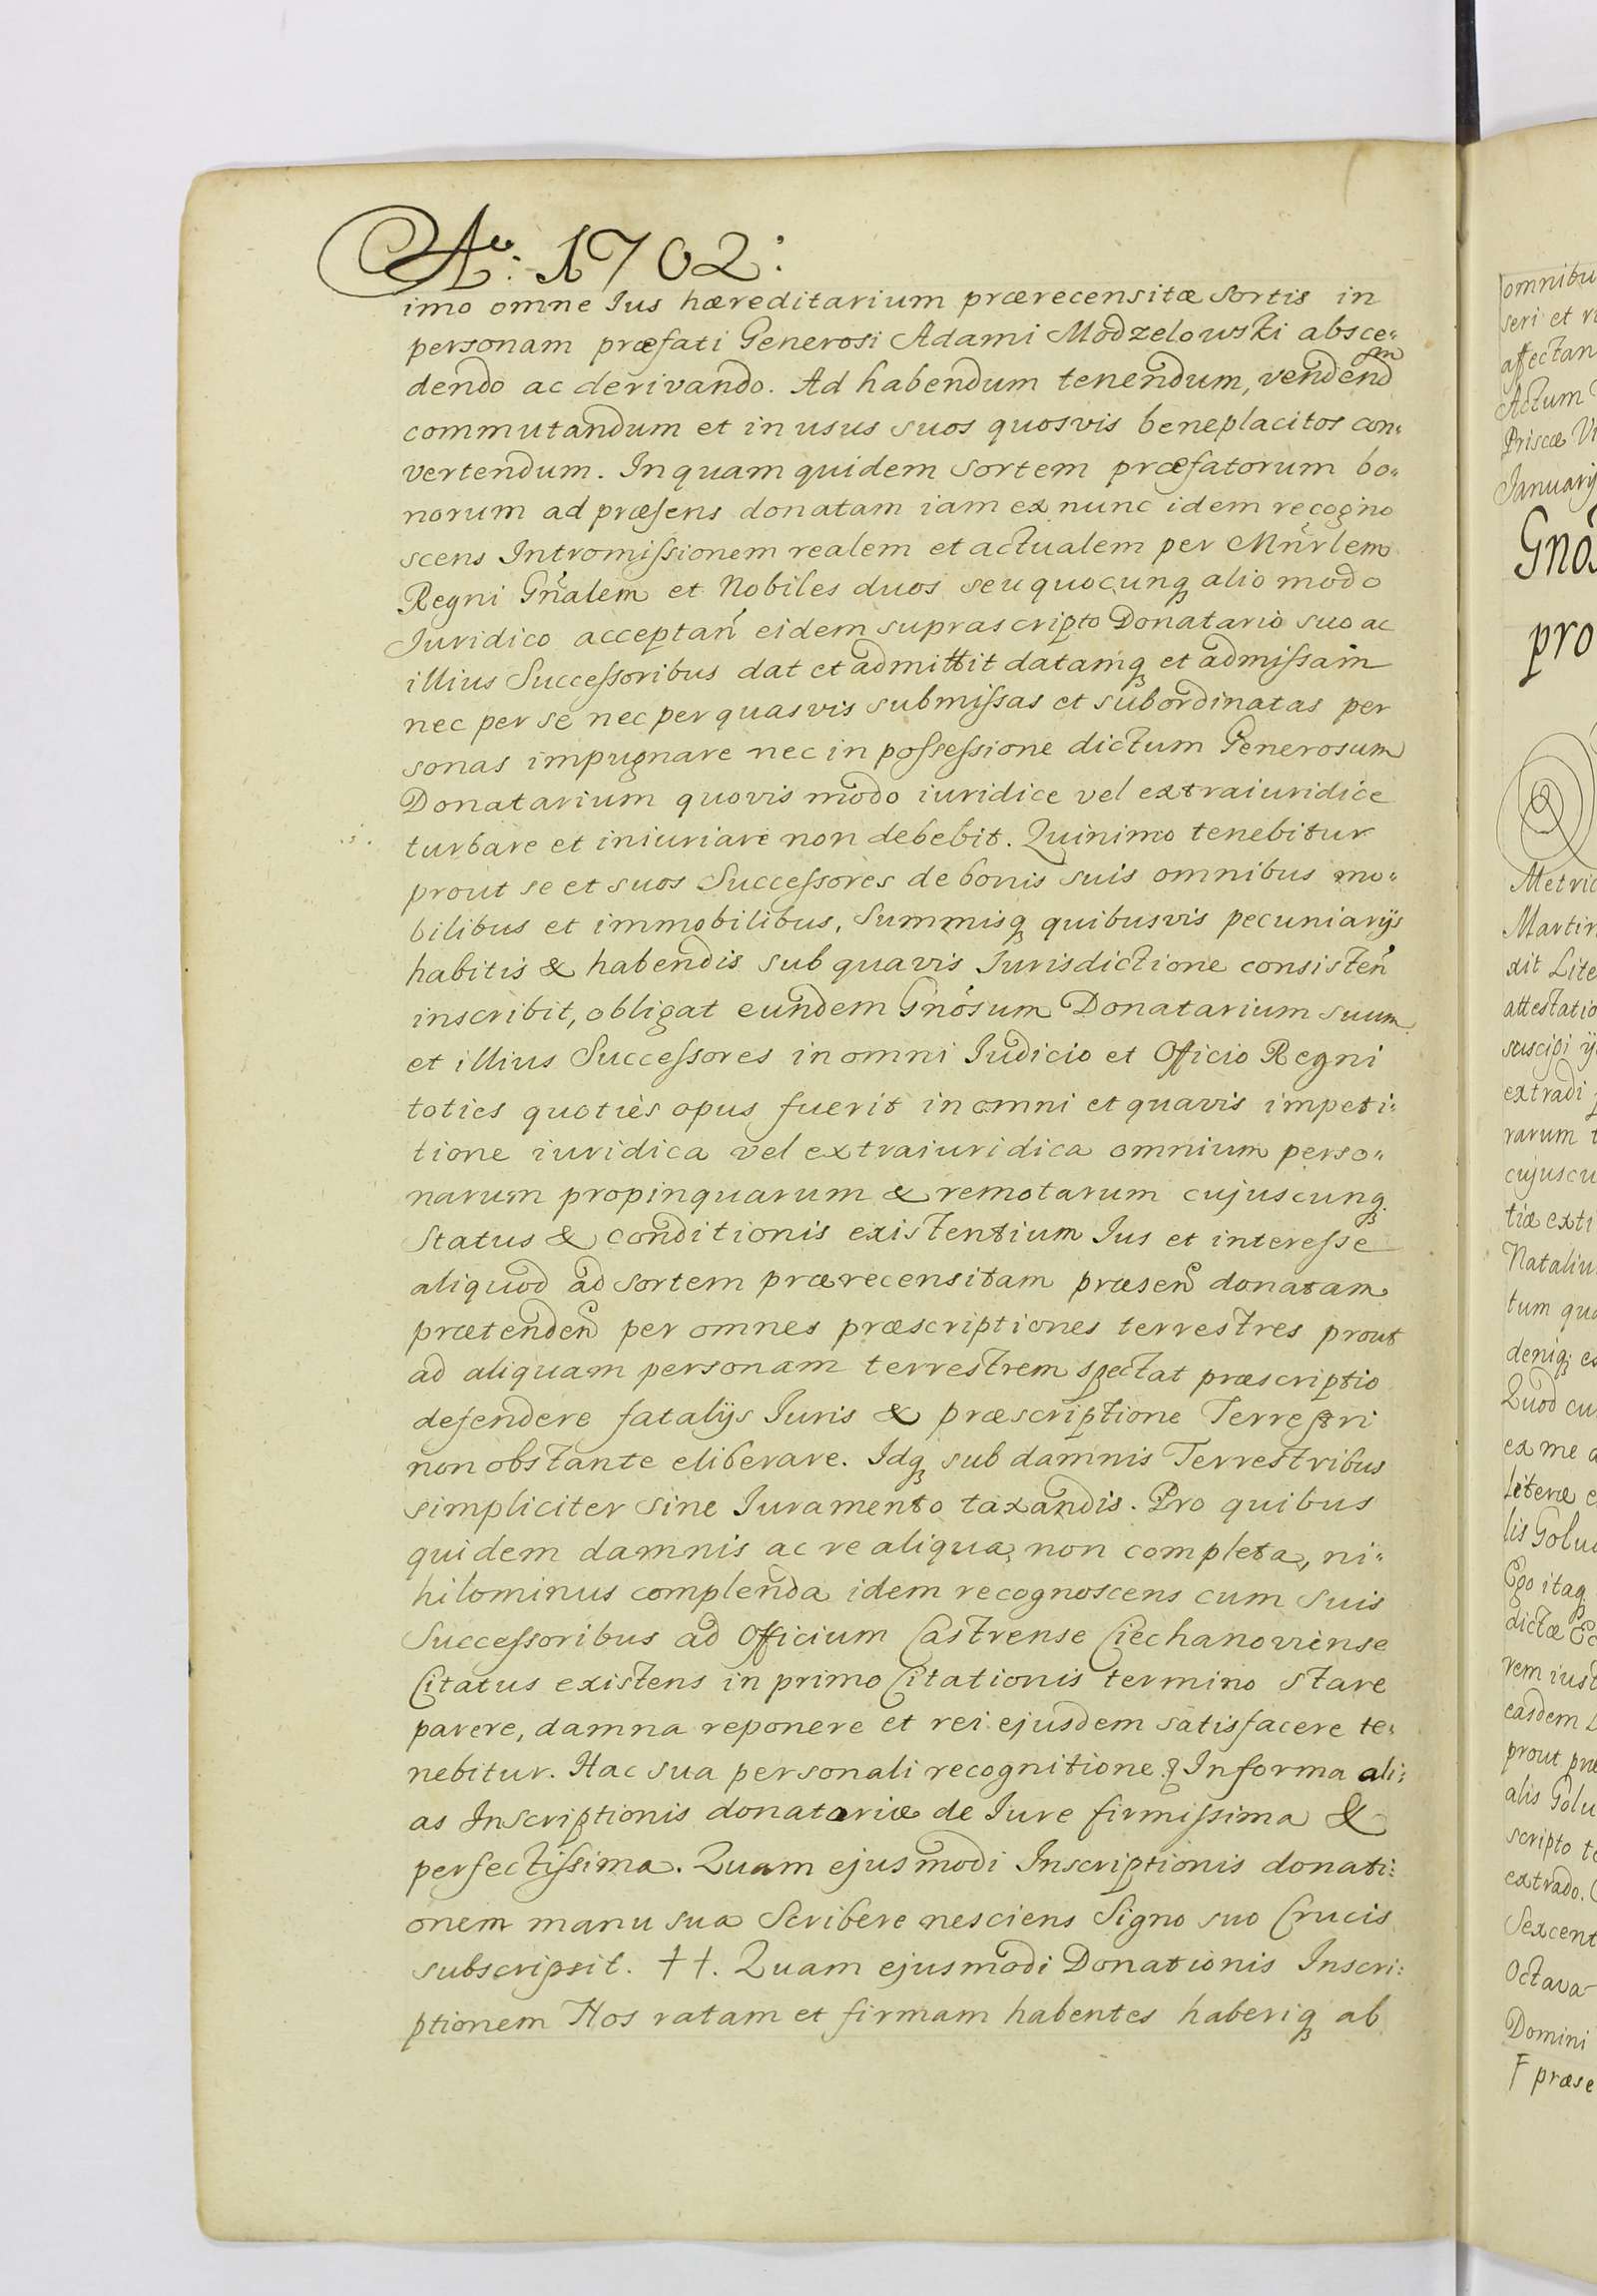 Ao: 1702:
imo omne Ius hæreditarium præcensitæ Sortis in
personam præfati Generosi Adami Modzelowski absce„
dendo ac derivando. Ad habendum tenendum, vendend um
commutandum et in usus suos quosvis beneplacitos con„
vertendum. In quam quidem Sortem præfatorum bo„
norum ad præsens donatam iam ex nunc idem recogno
scens Intromissionem realem et actualem per Mnrlem
Regni Gnalem et Nobiles duos seu quocunq alio modo
Iuridico acceptan eidem suprascripto Donatario suo ac
illius Successoribus dat et admittit datamq et admissam
nec per se nec per quasvis submissas et subordinatas per
sonas impugnare nec in possessione dictum Generosum
Donatarium quovis modo iuridice vel extraiuridice
turbare et iniuriare non debebit. Quinimo tenebitur
prout se et suos Successores de bonis suis omnibus mo„
bilibus et immobilibus, Summisq quibusvis pecuniarijs
habitis & habendis sub quavis Iurisdictione consisten
inscribit, obligat eundem Gnosum Donatarium suum
et illius Successores in omni Iudicio et Officio Regni
toties quoties opus fuerit in omni et quavis impeti:
tione iuridica vel extraiuridica omnium perso„
narum propinquarum & remotarum cujuscunq
Status & conditionis existentium Ius et interesse
aliquod ad sortem prærecensitam præsen donatam
prætenden per omnes præscriptiones terrestres prout
ad aliquam personam terrestrem spectat præscriptio
defendere fatalijs Iuris & præscriptione Terrestri
non obstante eliberare. Idq sub damnis Terrestribus
simpliciter sine Iuramento taxandis. Pro quibus
quidem damnis ac re aliqua non completa, ni„
hilominus complenda idem recognoscens cum suis
Successoribus ad Officium Castrense Ciechanoviense
Citatus existens in primo Citationis termino stare
parere, damna reponere et rei ejusdem satisfacere te„
nebitur. Hac sua personali recognitione & In forma ali:
as Inscriptionis donatoriæ de Iure firmissima &
perfectissima. Quam ejusmodi Inscriptionis donati:
onem manu sua Scribere nesciens Signo suo Crucis
subscripsit. ††. Quam ejusmodi Donationis Inscri:
ptionem Nos ratam et firmam habentes haberiq ab
omnibu
seri et
affectan
Actum
Priscæ
Ianuarij
Gnos
pro
Metric
Martin
xit Lite
attestatio
suscipi
extradi
rarum
cujuscu
tiæ exti
Nataliu
tum qua
deniq; es
Quod cu
ex me
Literæ
lis Golu
Ego itaq
dictæ
rem iust
easdem
prout præ
alis Golu
scripto
extrado.
Sexcent
Octava
Domini
præse